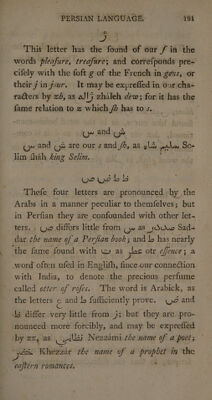 PERSIAN LANGUAGE. 191
ژ
This letter has the sound of our s in the
words pleasure, treasure; and corresponds pre-
cisely with the soft g of the French in gens, or
their j in jour. It may be expressed in our cha-
racters by zh, as ژاله zhaleh dew; for it has the
same relation to z which sh has to s.
س and ش
س and ش are our s and sh, as سليم شاه Se-
lim shah king Selim.
ص ض ط ظ
These four letters are pronounced by the
Arabs in a manner peculiar to themselves; but
in Persian they are confounded with other let-
ters. ص differs little from س as صددر Sad-
dar the name of a Persian book; and ط has nearly
the same sound with ت as عطر otr essence; a
word often used in English, since our connection
with India, to denote the precious perfume
called otter of roses. The word is Arabick, as
the letters ع and ط sufficiently prove. ض and
ظ differ very little from ز; but they are pro-
nounced more forcibly, and may be expressed
by zz, as نظامي Nezzámi the name of a poet;
خضر Khezzar the name of a prophet in the
eastern romances.